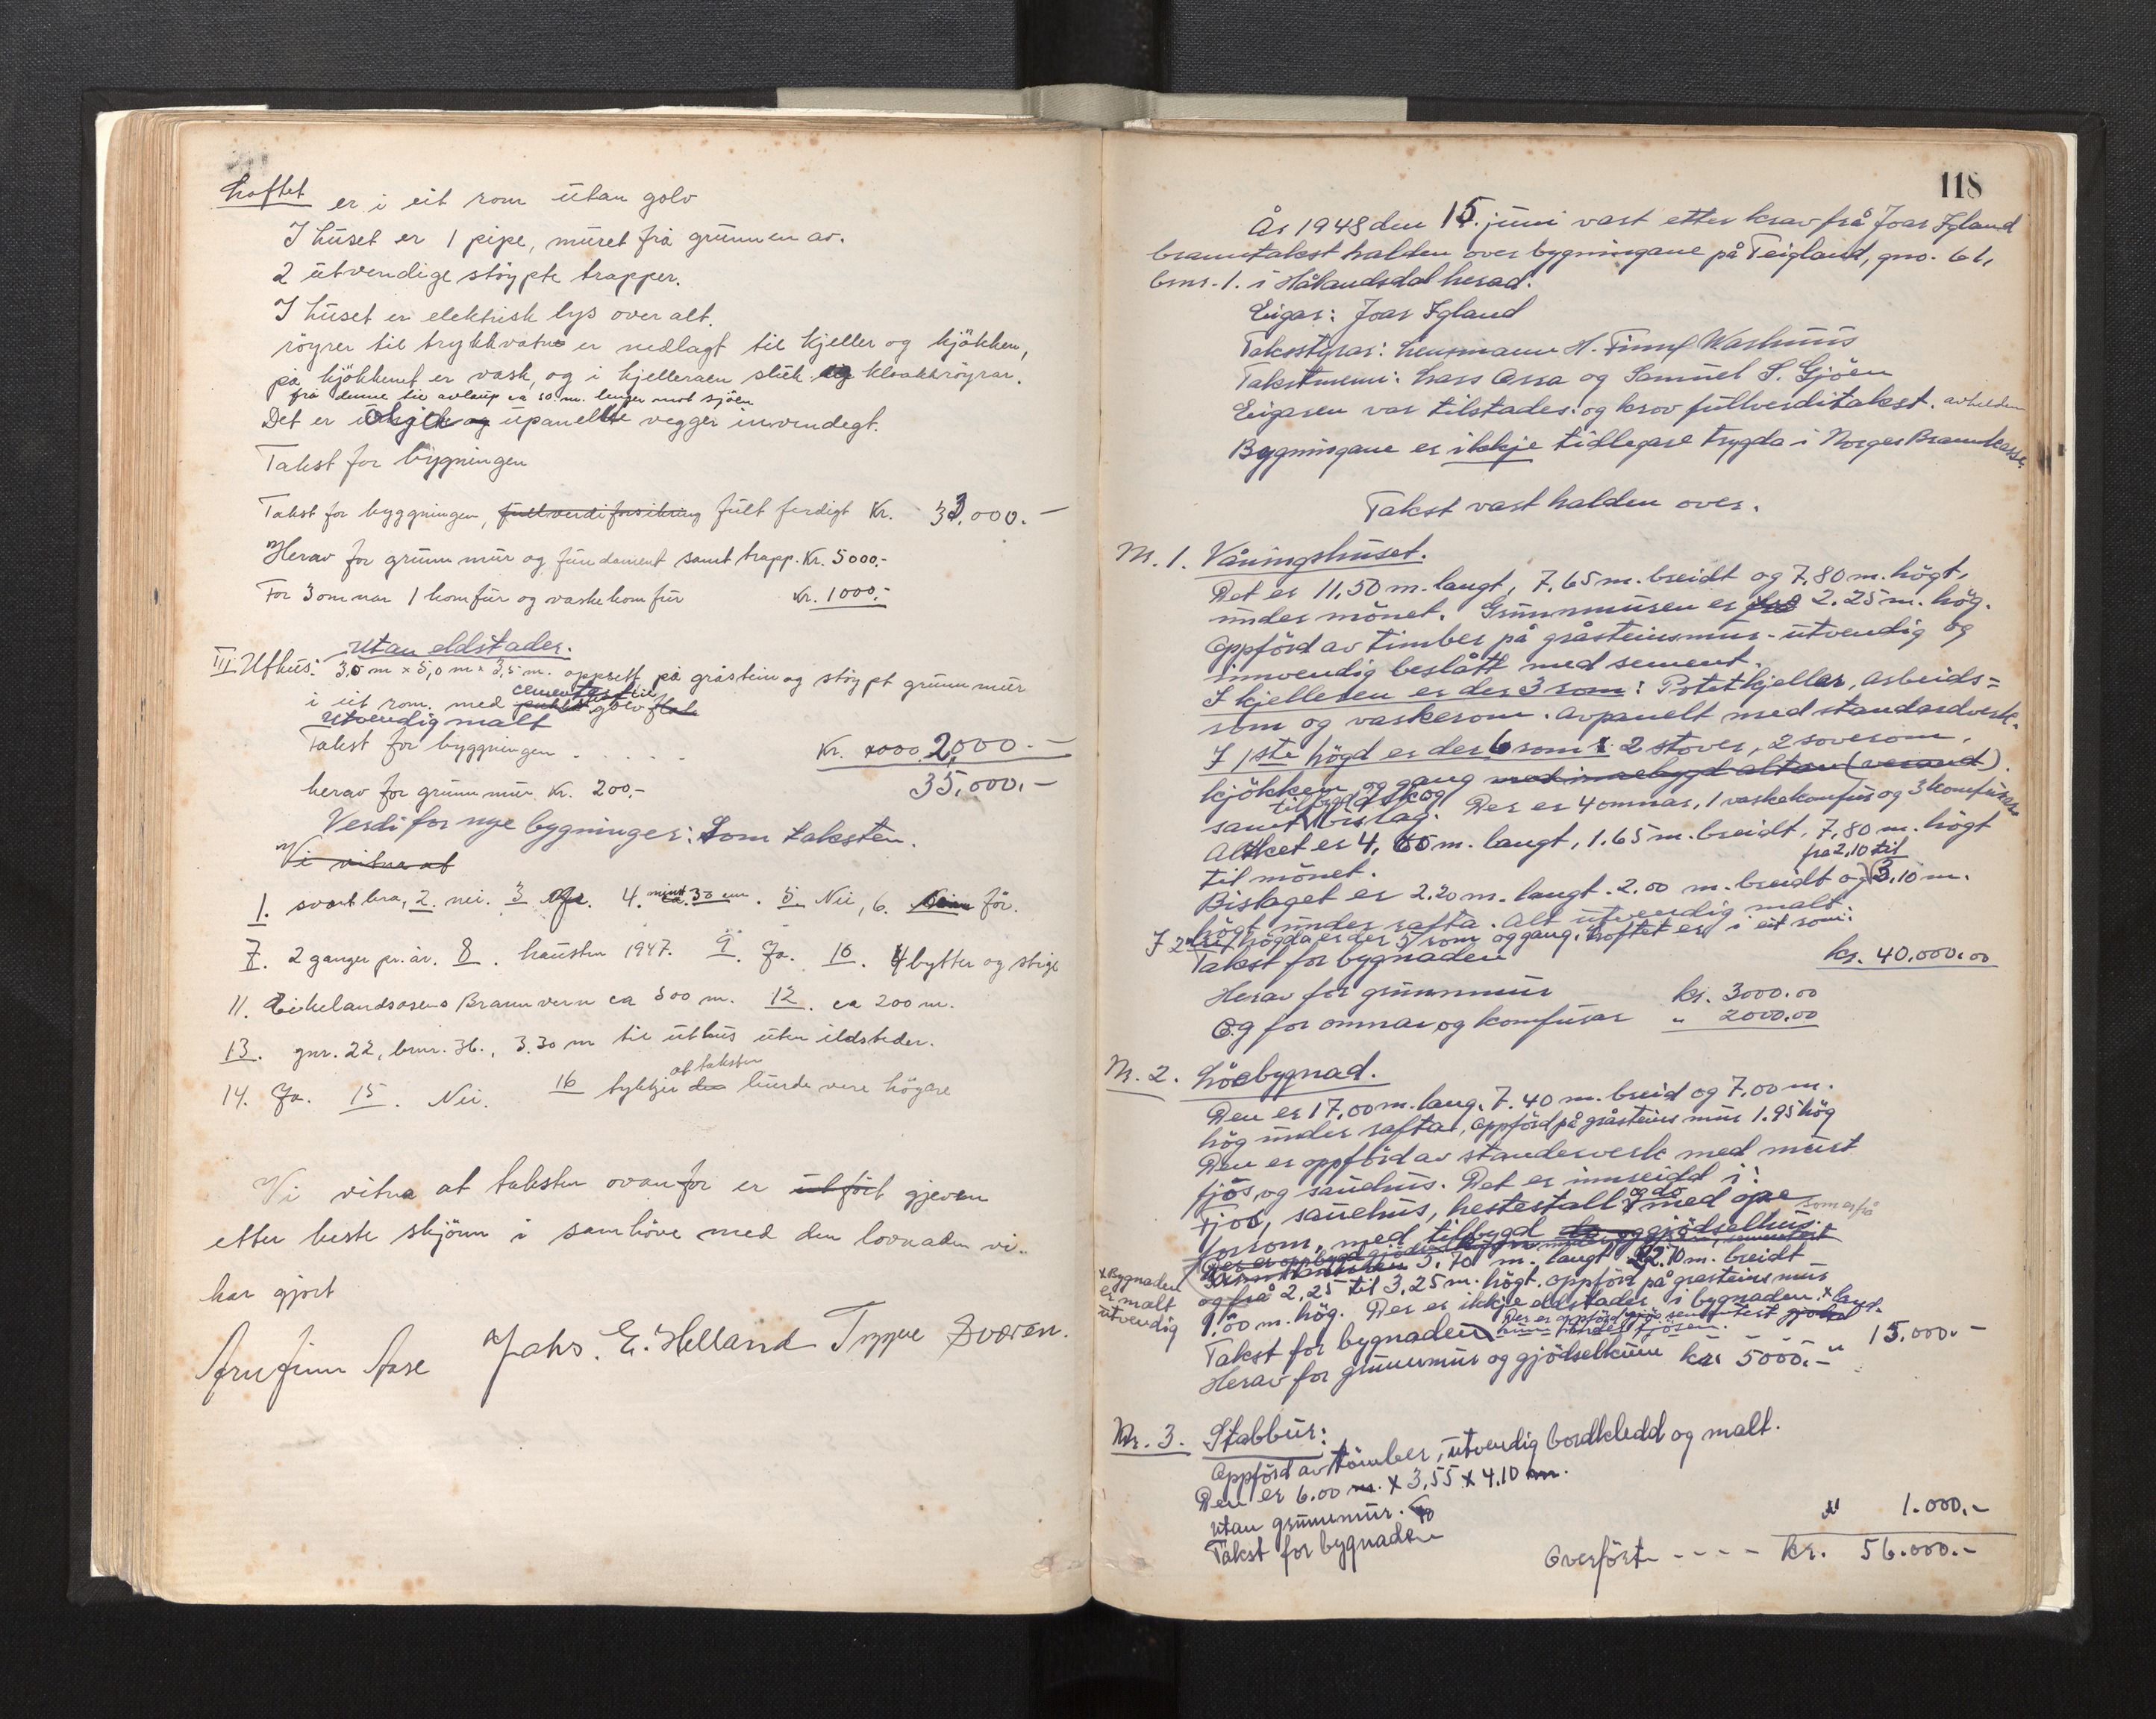 Loftet er i eit rom utan golv
I huset er 1 pipe, muret frå grunnen av.
2 utvendige støypte trapper.
I huset er elektrisk lys over alt.
röyrer til trykkvatn er nedlagt til kjeller og kjökken,
på kjökkenet er vask, og i kjelleraen sluk og kloakkröyrar.
frå denne til avlaup ca 50 m. lenger mot sjöen
Det er upanelte vegger innvendegt.
Takst for bygningen
Takst for byggningen, fullverdiforsikring fult ferdigt Kr. 33.000.-
Herav for grunnmur og fundament samt trapp. Kr. 5000.-
For 3 omnar 1 komfur og vaskekomfur Kr. 1000.-
utan eldstader.
III Uthus: 3,5 m x 5,0 m x 3,5 m. oppsett på gråstein og støypt grunnmur
i eit rom. med cementert golv
utvendig malt
Takst for byggningen . . . . . Kr. 2,000.-
35,000.-
herav for grunnmur Kr. 200.-
Verdi for nye bygninger: Som taksten.
Vi vitna at
1. svart bra, 2. nei. 3 4. minst 30 cm. 5. Nei, 6. för.
7. 2 ganger pr. år. 8. hausten 1947. 9. Ja. 10. 4 bytter og stige
11. Eikelandsosens Brannvern ca 500 m. 12. ca 200 m.
13. gnr. 22, brnr. 36., 3.30 m til uthus uten ildsteder.
14. Ja. 15. Nei. 16 tykkjer at taksten burde vere högare
Vi vitna at taksten ovanfor er utfört gjeven
etter beste skjönn i samhöve med den lovnaden vi
har gjort
Arnfinn Aase Johs. E. Helland Trygve Sværen.
118
År 1948 den 15. juni vart etter krav frå Joar Igland
branntakst halden over bygningane på Teigland, gno. 61,
brnr. 1. i Hålandsdal herad.
Eigar: Joar Igland
Takststyrar: lensmann H. Finne Warhuus
Takstmenn: Lars Ossa og Samuel S. Gjöen
Eigaren var tilstades: og krov fullverditakst. avhelden
Bygningane er ikkje tidlegare trygda i Norges Brannkasse.
Takst vart halden over.
Nr. 1. Våningshuset.
Det er 11,50 m. langt, 7,65 m. breidt og 7,80 m. högt,
under mönet. Grunnmuren er 2.25 m. hög.
Oppförd av timber på gråsteinsmur - utvendig og
innvendig beslått med sement.
I kjelleren er der 3 rom: Potetkjellar, arbeids=
rom og vaskerom. Avpanelt med standardverk.
I 1ste högd er der 6 rom: 2 stover, 2 soverom,
kjökken og gang med innebygd altan (verand).
samt tilbygd ark og bislag. Der er 4 omnar, 1 vaskekomfur og 3 komfurar
Arket er 4,65 m. langt, 1.65 m. breidt, 7,80 m. högt
til mönet.
Bislaget er 2.20 m. langt. 2.00 m. breidt og frå 2,10 til 3,10 m.
högt under rafta. Alt utvendig malt
I 2dre högda er der 5 rom og gang. Loftet er i eit rom:
Takst for bygnaden kr. 40.000.00
Herav for grunnmur kr. 3000.00
Og for omnar og komfurar " 2000.00
Nr. 2. Löebygnad.
Den er 17,00 m. lang, 7.40 m. breid og 7,00 m.
hög under rafta, oppförd på gråsteins mur 1.95 hög
Den er oppförd av standerverk med murt
fjös, og sauehus. Det er innreidd i:
Fjos, sauehus, hestestall og do med ope
forrom, med tilbygd gjödselhus. som er frå
5.70 m. langt 2.10 m. breidt
og frå 2,25 til 3,25 m. högt. oppförd på gråsteins mur
1.00 m. hög. Der er ikkje eldstader i bygnaden. x
x Bygnaden
er malt
utvendig
Takst for bygnaden 15.000.-
Herav for grunnmur og gjödselkum kr. 5000.-
Nr. 3. Stabbur:
Oppförd av tömber, utvendig bordkledd og malt.
Den er 6.00 m. x 3,55 x 4,10 m.
utan grunnmur.
Takst for bygnaden " 1.000.-
Overfört - - - - kr. 56.000.-